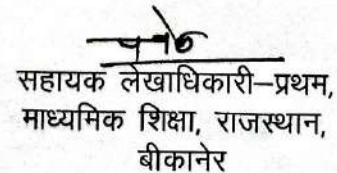 सहायक लेखाधिकारी–प्रथम,
माध्यमिक शिक्षा, राजस्थान,
बीकानेर